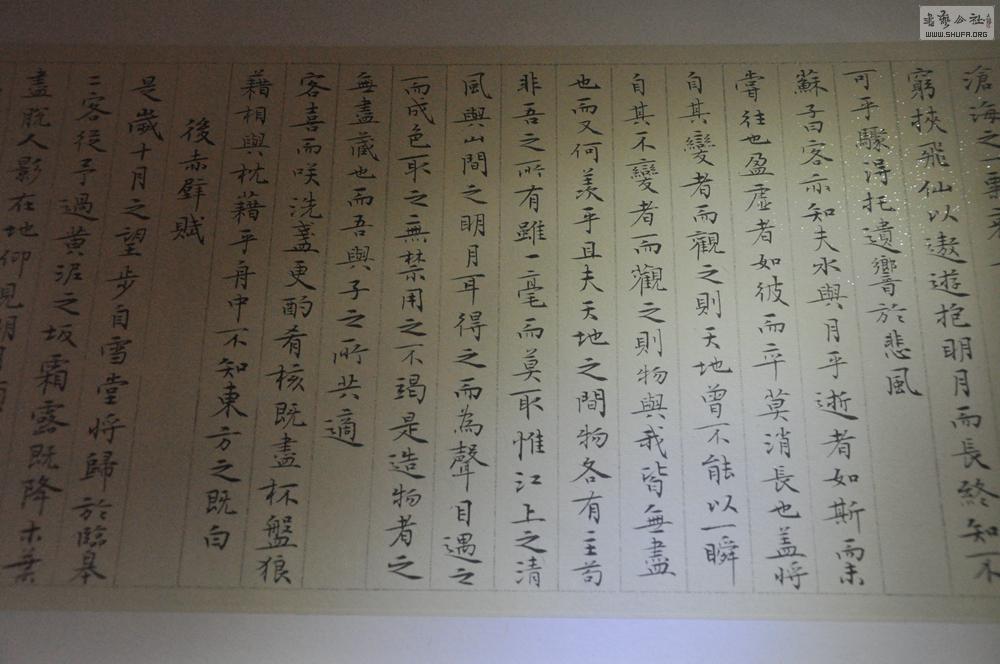 滄海之一粟哀
窮挾飛仙以遨遊抱明月而長終知不
可乎驟得托遺響於悲風
蘇子曰客亦知夫水與月乎逝者如斯而未
嘗往也盈虛者如彼而卒莫消長也盖將
自其變者而觀之則天地曾不能以一瞬
自其不變者而觀之則物與我皆無盡
也而又何羨乎且夫天地之間物各有主苟
非吾之所有雖一毫而莫取惟江上之清
風與山間之明月耳得之而為聲目遇之
而成色取之無禁用之不竭是造物者之
無盡藏也而吾與子之所共適
客喜而咲洗盞更酌肴核既盡杯盤狼
藉相與枕藉乎舟中不知東方之既白
後赤壁賦
是歲十月之望步自雪堂將歸於臨皋
二客從予過黃泥之坂霜露既降木葉
盡脫人影在地仰見明月
書藝公社
WWW.SHUFA.ORG